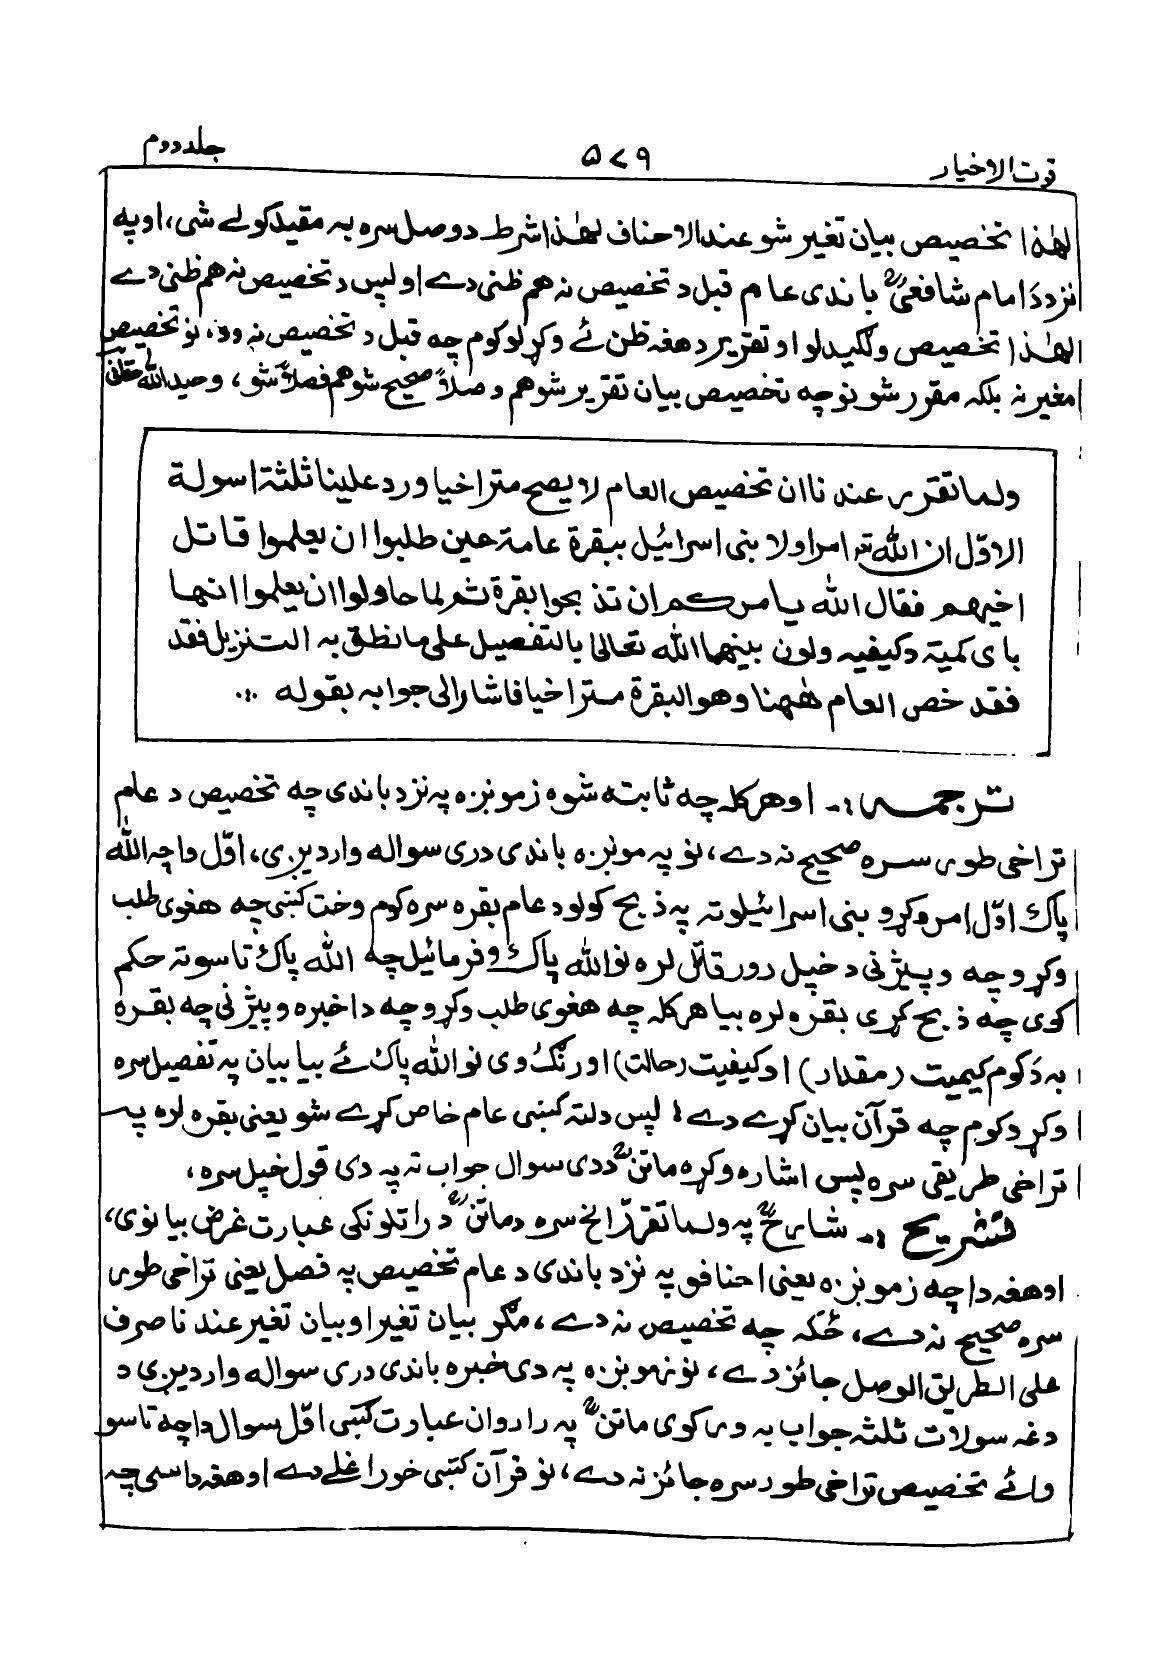 قوت الاخیار ۵۷۹ جلد دوم
لهٰذا تخصیص بیان تغیر شو عند الاحناف لهٰذا شرط د وصل سره به مقید کولے شی، او په
نزد دَ امام شافعیؒ باندی عام قبل د تخصیص نه هم ظنی دے او پس د تخصیص نه هم ظنی دے
لهٰذا تخصیص ولگیدلو او تقریر د هغه ظن ئے وکړلو کوم چه قبل د تخصیص نه وو، نو تخصیص
مغیر نه بلکه مقرر شو نو چه تخصیص بیان تقریر شو هم وصلاً صحیح شو هم فصلاً شو، وحید الله حقانی
ولما تقرر عندنا ان تخصیص العام لا یصح متراخیا ورد علینا ثلثة اسولة
الاوّل ان الله تعالیٰ امر اولا بنی اسرائیل ببقرة عامة حین طلبوا ان یعلموا قاتل
اخیهم فقال الله یامرکم ان تذبحوا بقرة ثم لما حاولوا ان یعلموا انها
بای کمیة وکیفیه ولون بینها الله تعالیٰ بالتفصیل علی ما نطق به التنزیل فقد
فقد خص العام هٰهنا وهو البقرة متراخیا فاشار الی جوابه بقوله
ترجمه :۔ او هر کله چه ثابته شوه زمونږه په نزد باندی چه تخصیص د عام
تراخی طوری سره صحیح نه دے، نو په مونږه باندی دری سواله واردیږی، اوّل دا چه الله
پاک اوّل امر وکړو بنی اسرائیلو ته په ذبح کولو د عام بقره سره کوم وخت کښی چه هغوی طلب
وکړو چه وپیژنی د خپل رور قاتل لره نو الله پاک وفرمائیل چه الله پاک تاسو ته حکم
کوی چه ذبح کړی بقره لره بیا هر کله چه هغوی طلب وکړو چه دا خبره وپیژنی چه بقره
به دَ کوم کیمیت (مقدار) او کیفیت (حالت) او رنگ وی نو الله پاک ئے بیا بیان په تفصیل سره
وکړو کوم چه قرآن بیان کړے دے، پس دلته کښی عام خاص کړے شو یعنی بقره لره په
تراخی طریقی سره پس اشاره وکړه ماتنؒ د دی سوال جواب ته په دی قول خپل سره،
تشریح :۔ شارحؒ په ولما تقرّر الخ سره د ماتنؒ د راتلونکی عبارت غرض بیانوی،
او هغه دا چه زمونږه یعنی احنافو په نزد باندی د عام تخصیص په فصل یعنی تراخی طوری
سره صحیح نه دے، ځکه چه تخصیص نه دے، مگر بیان تغیر او بیان تغیر عندنا صرف
علی الطریق الوصل جائز دے، نو زمونږه په دی خبره باندی دری سواله واردیږی د
دغه سولات ثلثه جواب به ورکوی ماتنؒ په را روان عبارت کښی اوّل سوال دا چه تاسو
وائے تخصیص تراخی طور سره جائز نه دے، نو قرآن کښی خو راغلے دے او هغه داسی چه